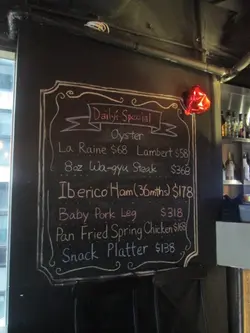 Daily's Special
Oyster
La Raine $68 Lambert $58
8oz Wa-gyu Steak $368
Iberico Ham (36mths) $178
Baby Pork Leg $318
Pan Fried Spring Chicken $168
Snack Platter $138